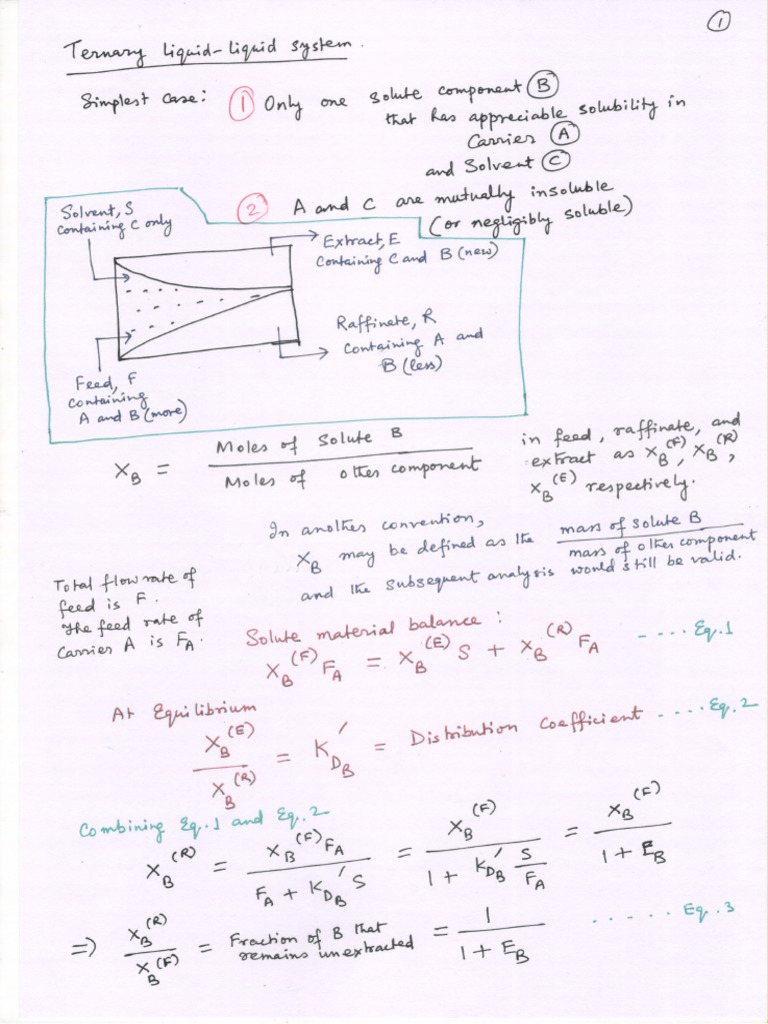 ①
Ternary liquid-liquid system.
Simplest case: ① Only one solute component Ⓑ
that has appreciable solubility in
Carrier Ⓐ
and Solvent Ⓒ
② A and C are mutually insoluble
(or negligibly soluble)
Solvent, S
containing C only
Extract, E
containing C and B (new)
Raffinate, R
containing A and
B (less)
Feed, F
containing
A and B (more)
X_B = Moles of Solute B / Moles of other component
in feed, raffinate, and
extract as X_B^(F), X_B^(R),
X_B^(E) respectively.
In another convention,
X_B may be defined as the mass of solute B / mass of other component
and the subsequent analysis would still be valid.
Total flow rate of
feed is F.
The feed rate of
Carrier A is F_A.
Solute material balance:
X_B^(F) F_A = X_B^(E) S + X_B^(R) F_A ---- Eq.1
At Equilibrium
X_B^(E) / X_B^(R) = K'_D_B = Distribution Coefficient ---- Eq.2
Combining Eq.1 and Eq.2
X_B^(R) = X_B^(F) F_A / (F_A + K'_D_B S) = X_B^(F) / (1 + K'_D_B S/F_A) = X_B^(F) / (1 + E_B)
⇒ X_B^(R) / X_B^(F) = Fraction of B that remains unextracted = 1 / (1 + E_B) ..... Eq.3